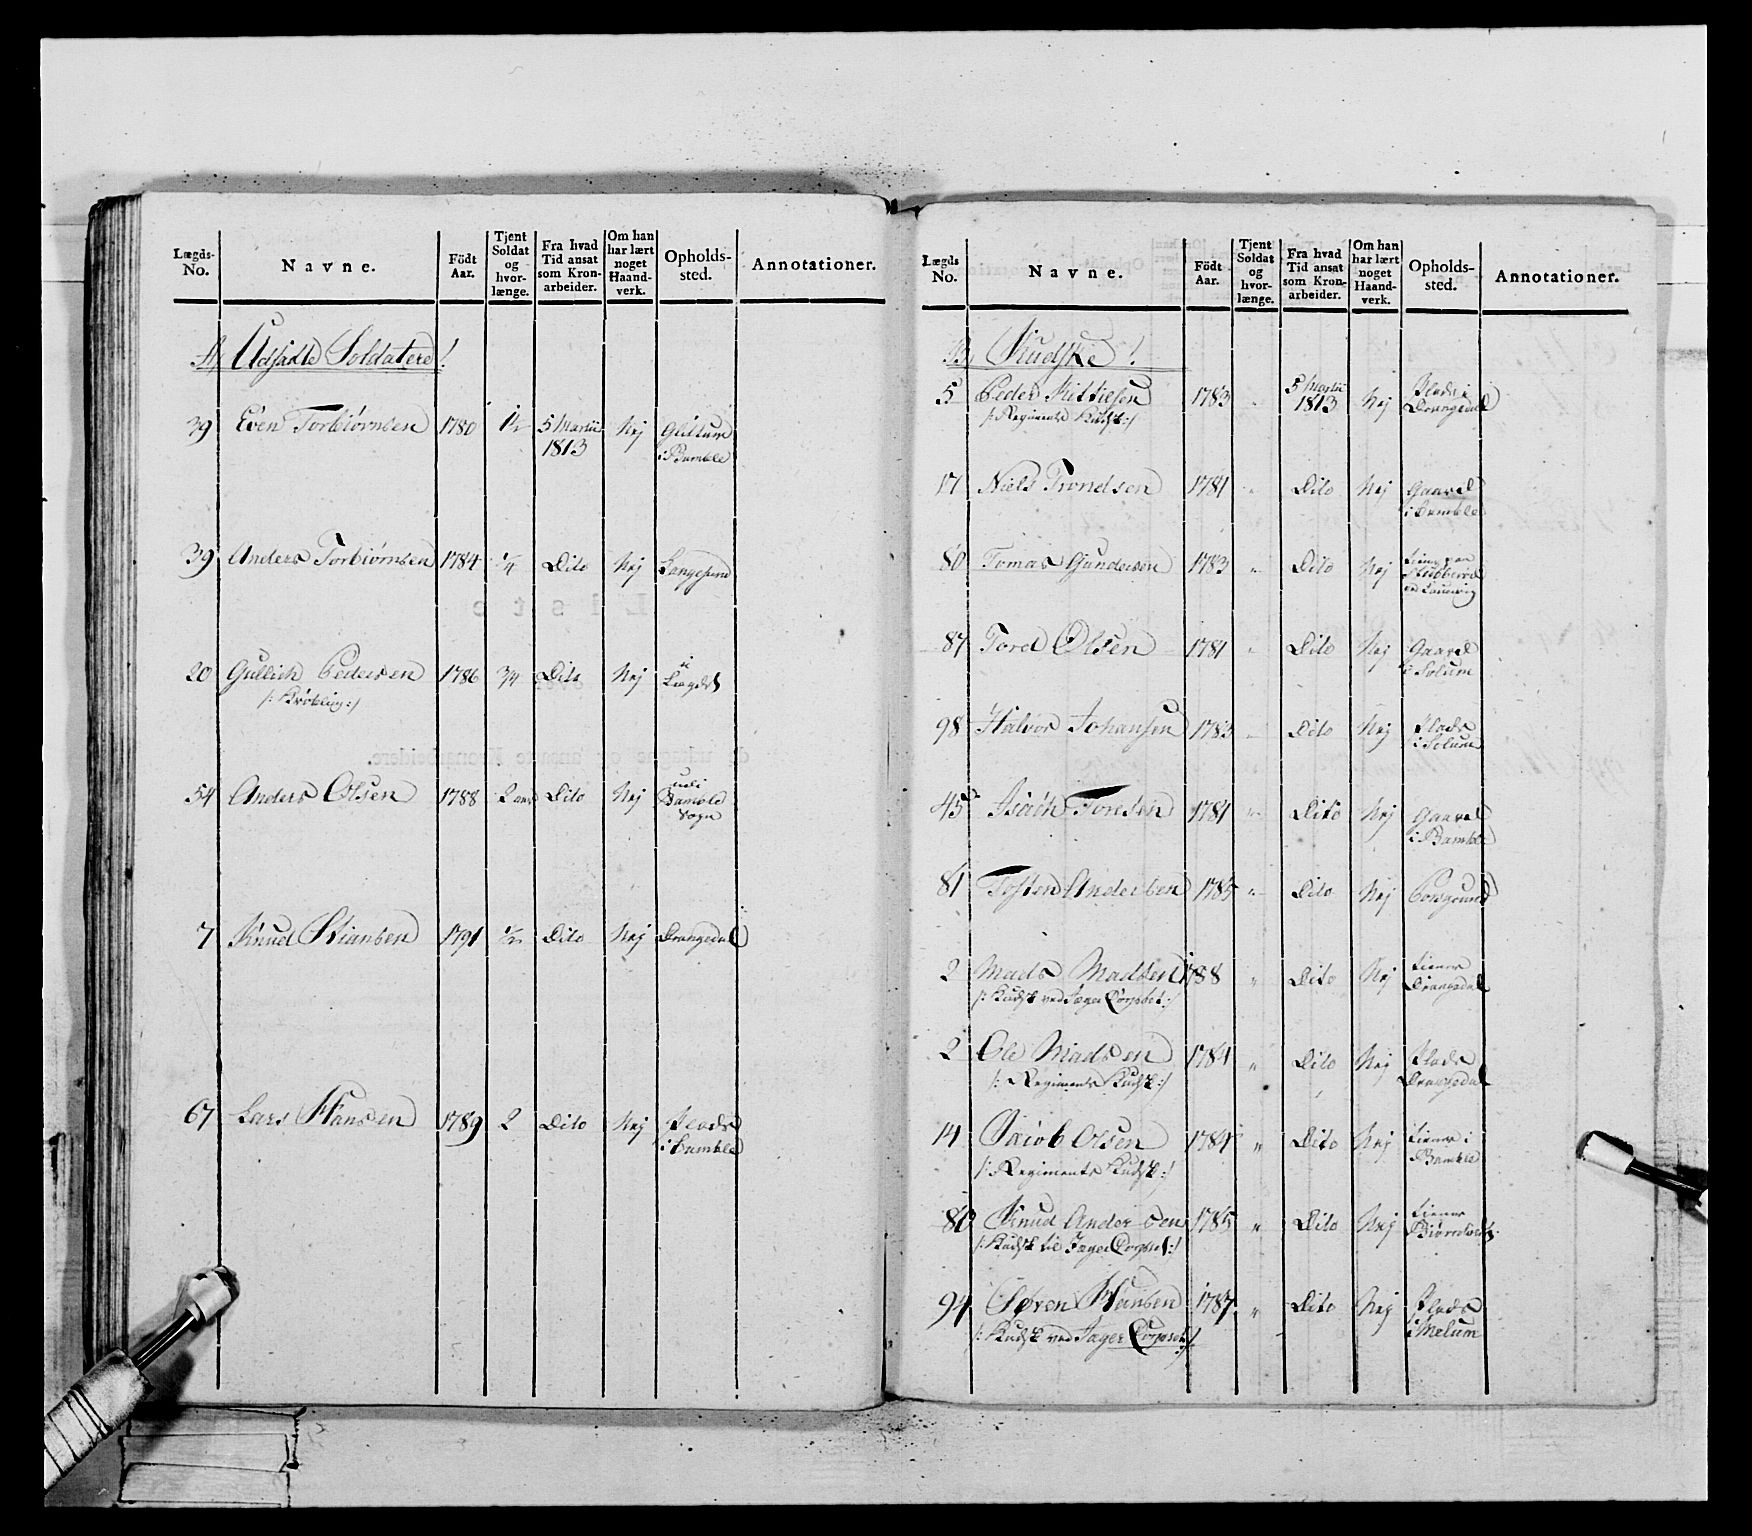 Lægds-No. Navne. Födt Aar. Tjent Soldat og hvor-længe. Fra hvad Tid ansat som Kron-arbeider. Om han har lært noget Haand-verk. Opholds-sted. Annotationer.
A, Udsatte Soldatere!
39 Even Torbiørnsen 1780 1/2 5 Martii 1813 Nej i Bamble
39 Anders Torbiørnsen 1784 1/4 Dito Nej Langesund
20 Gullich Pedersen 1786 3/4 Dito Nej i Lægdet
54 Anders Olsen 1788 2 aar Dito Nej udi Bamble Sogn
7 Knud Stiansen 1791 1/2 Dito Nej Drangedal
67 Lars Hansen 1789 2 Dito Nej Plads i Bamble
Lægds No. Navne. Födt Aar. Tjent Soldat og hvor-længe. Fra hvad Tid ansat som Kron-arbeider. Om han har lært noget Haand-verk. Opholds-sted. Annotationer.
B, Kudske!
5 Peder Kittilsen 1783 " 5 Martii 1813 Nej Plads i Drangedal
/: Regiments Kudsk :/
17 Niels Trondsen 1781 " Dito Nej Gaard i Bamble
80 Tomas Gundersen 1783 " Dito Nej
87 Tord Olsen 1781 " Dito Nej Gaard i Solum
98 Halvor Johansen 1783 " Dito Nej Plads i Solum
45 Isach Toresen 1781 " Dito Nej Gaard i Bamble
81 Tosten Andersen 1785 " Dito Nej Porsgrund
2 Mads Madsen 1788 " Dito Nej tiener Drangedal
/: Kudsk ved Jæger Corpset :/
2 Ole Madsen 1784 " Dito Nej Plads Drangedal
/: Regiments Kudsk :/
14 Jacob Olsen 1784 " Dito Nej tiener i Bamble
/: Regiments Kudsk :/
80 Knud Andersen 1785 " Dito Nej tiener
/: Kudsk til Jæger Corpset :/
94 Søren Hansen 1787 " Dito Nej Plads i Melum
/: Kudsk ved Jæger Corpset :/